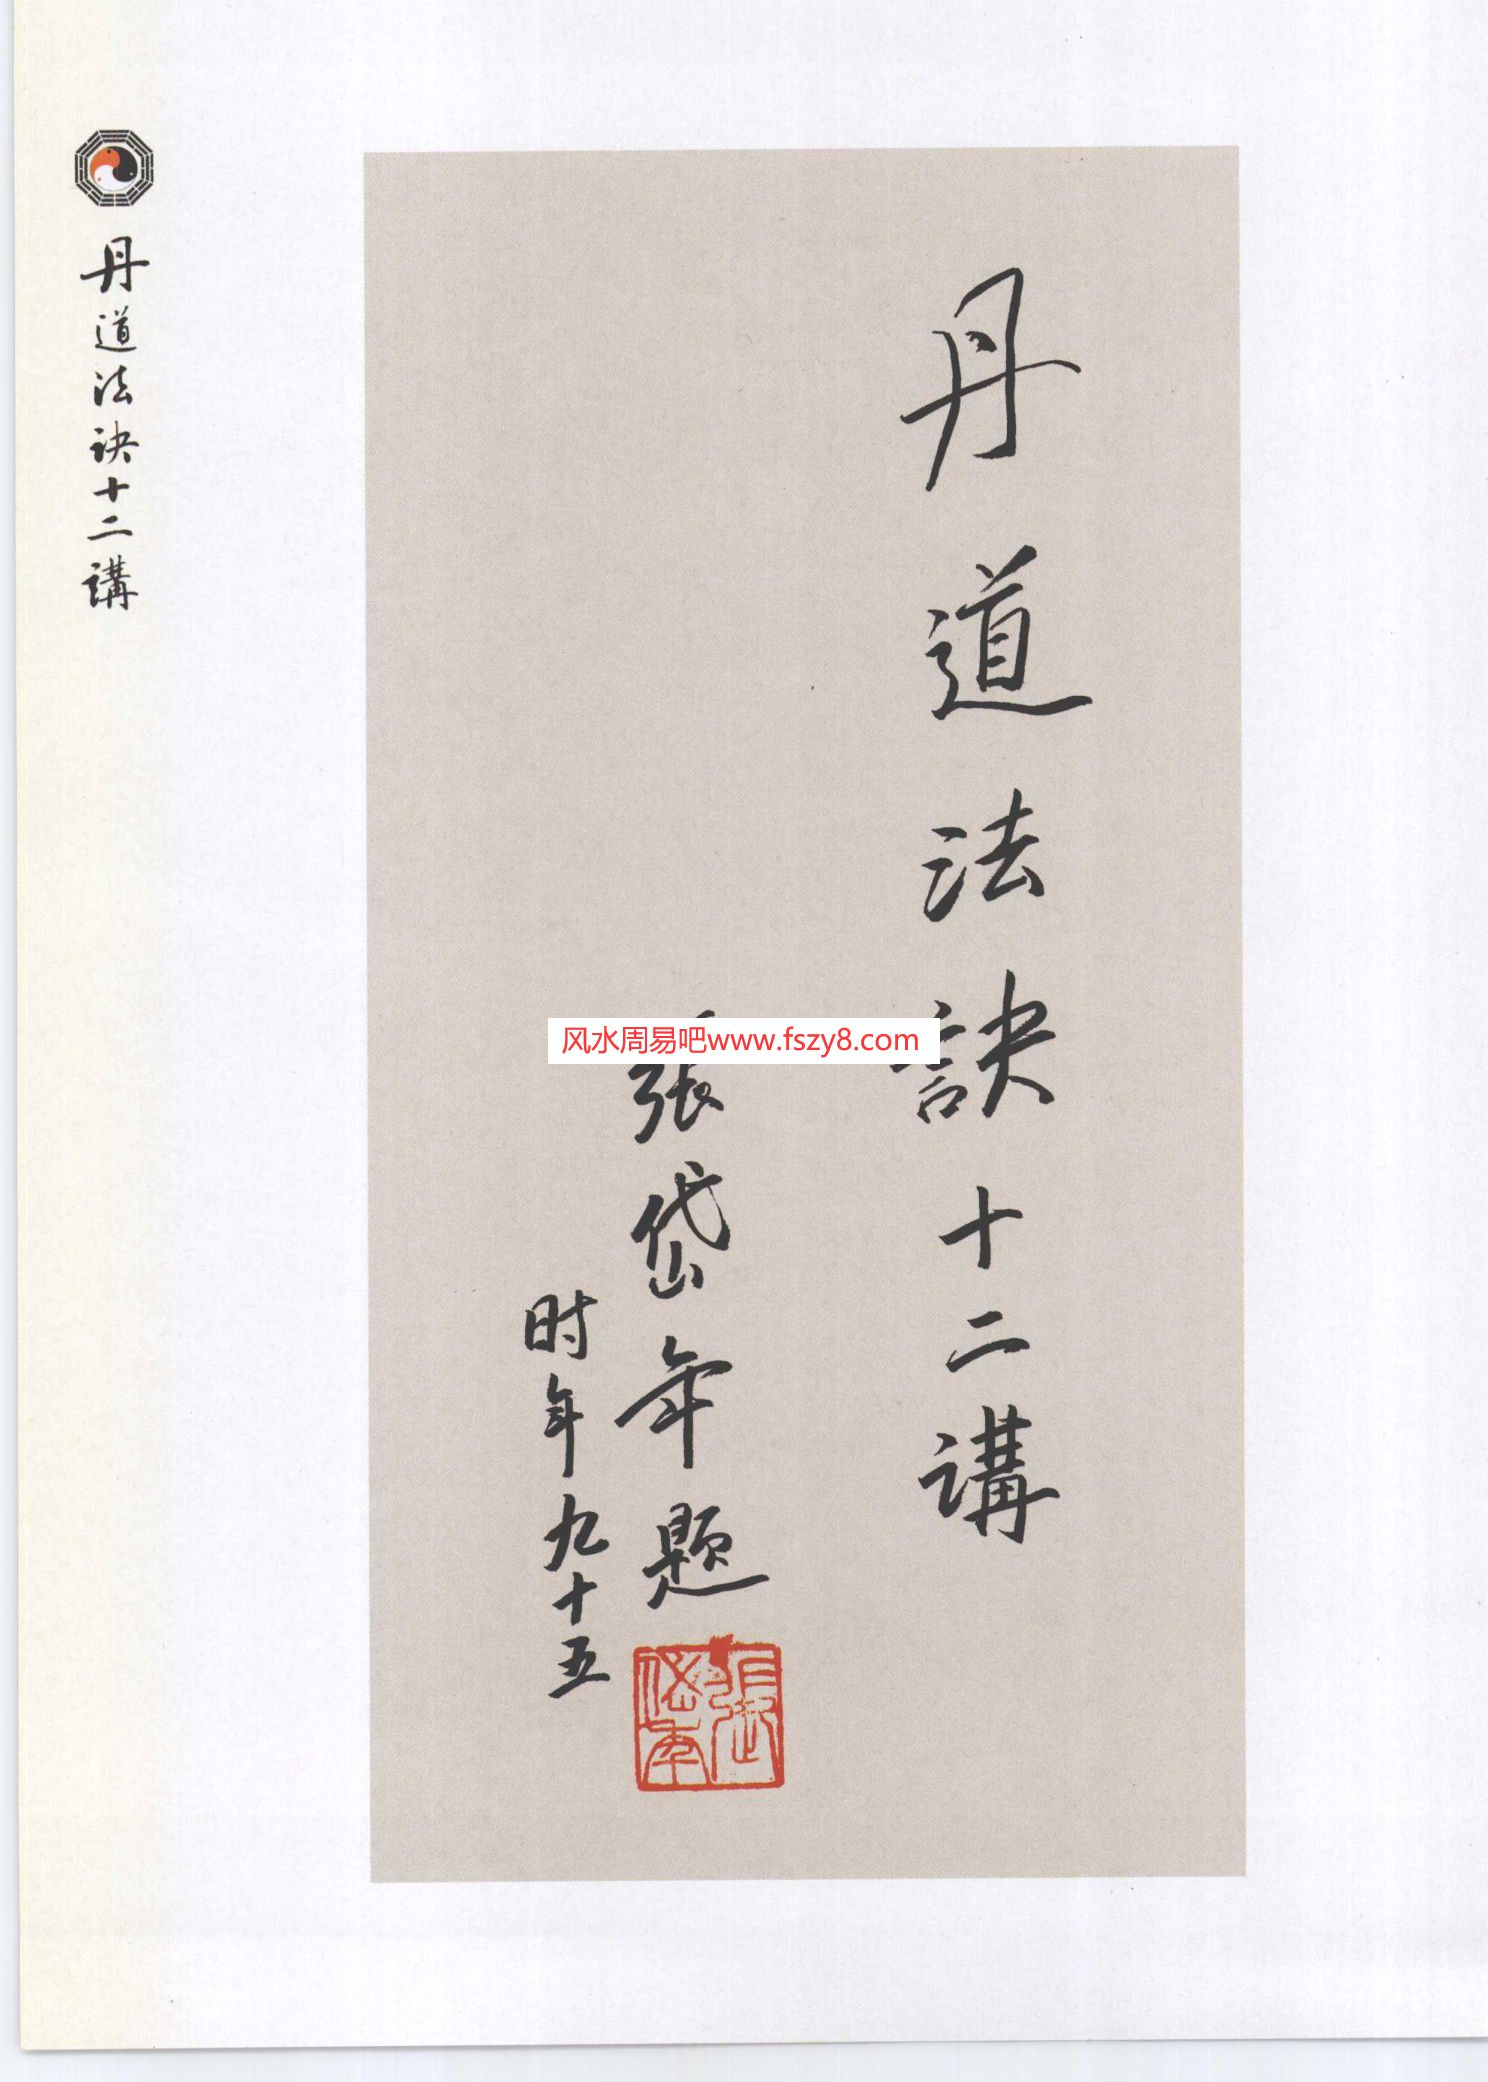 丹道法诀十二講
丹道法訣十二講
張岱年题
时年九十五
張岱年
风水周易吧www.fszy8.com